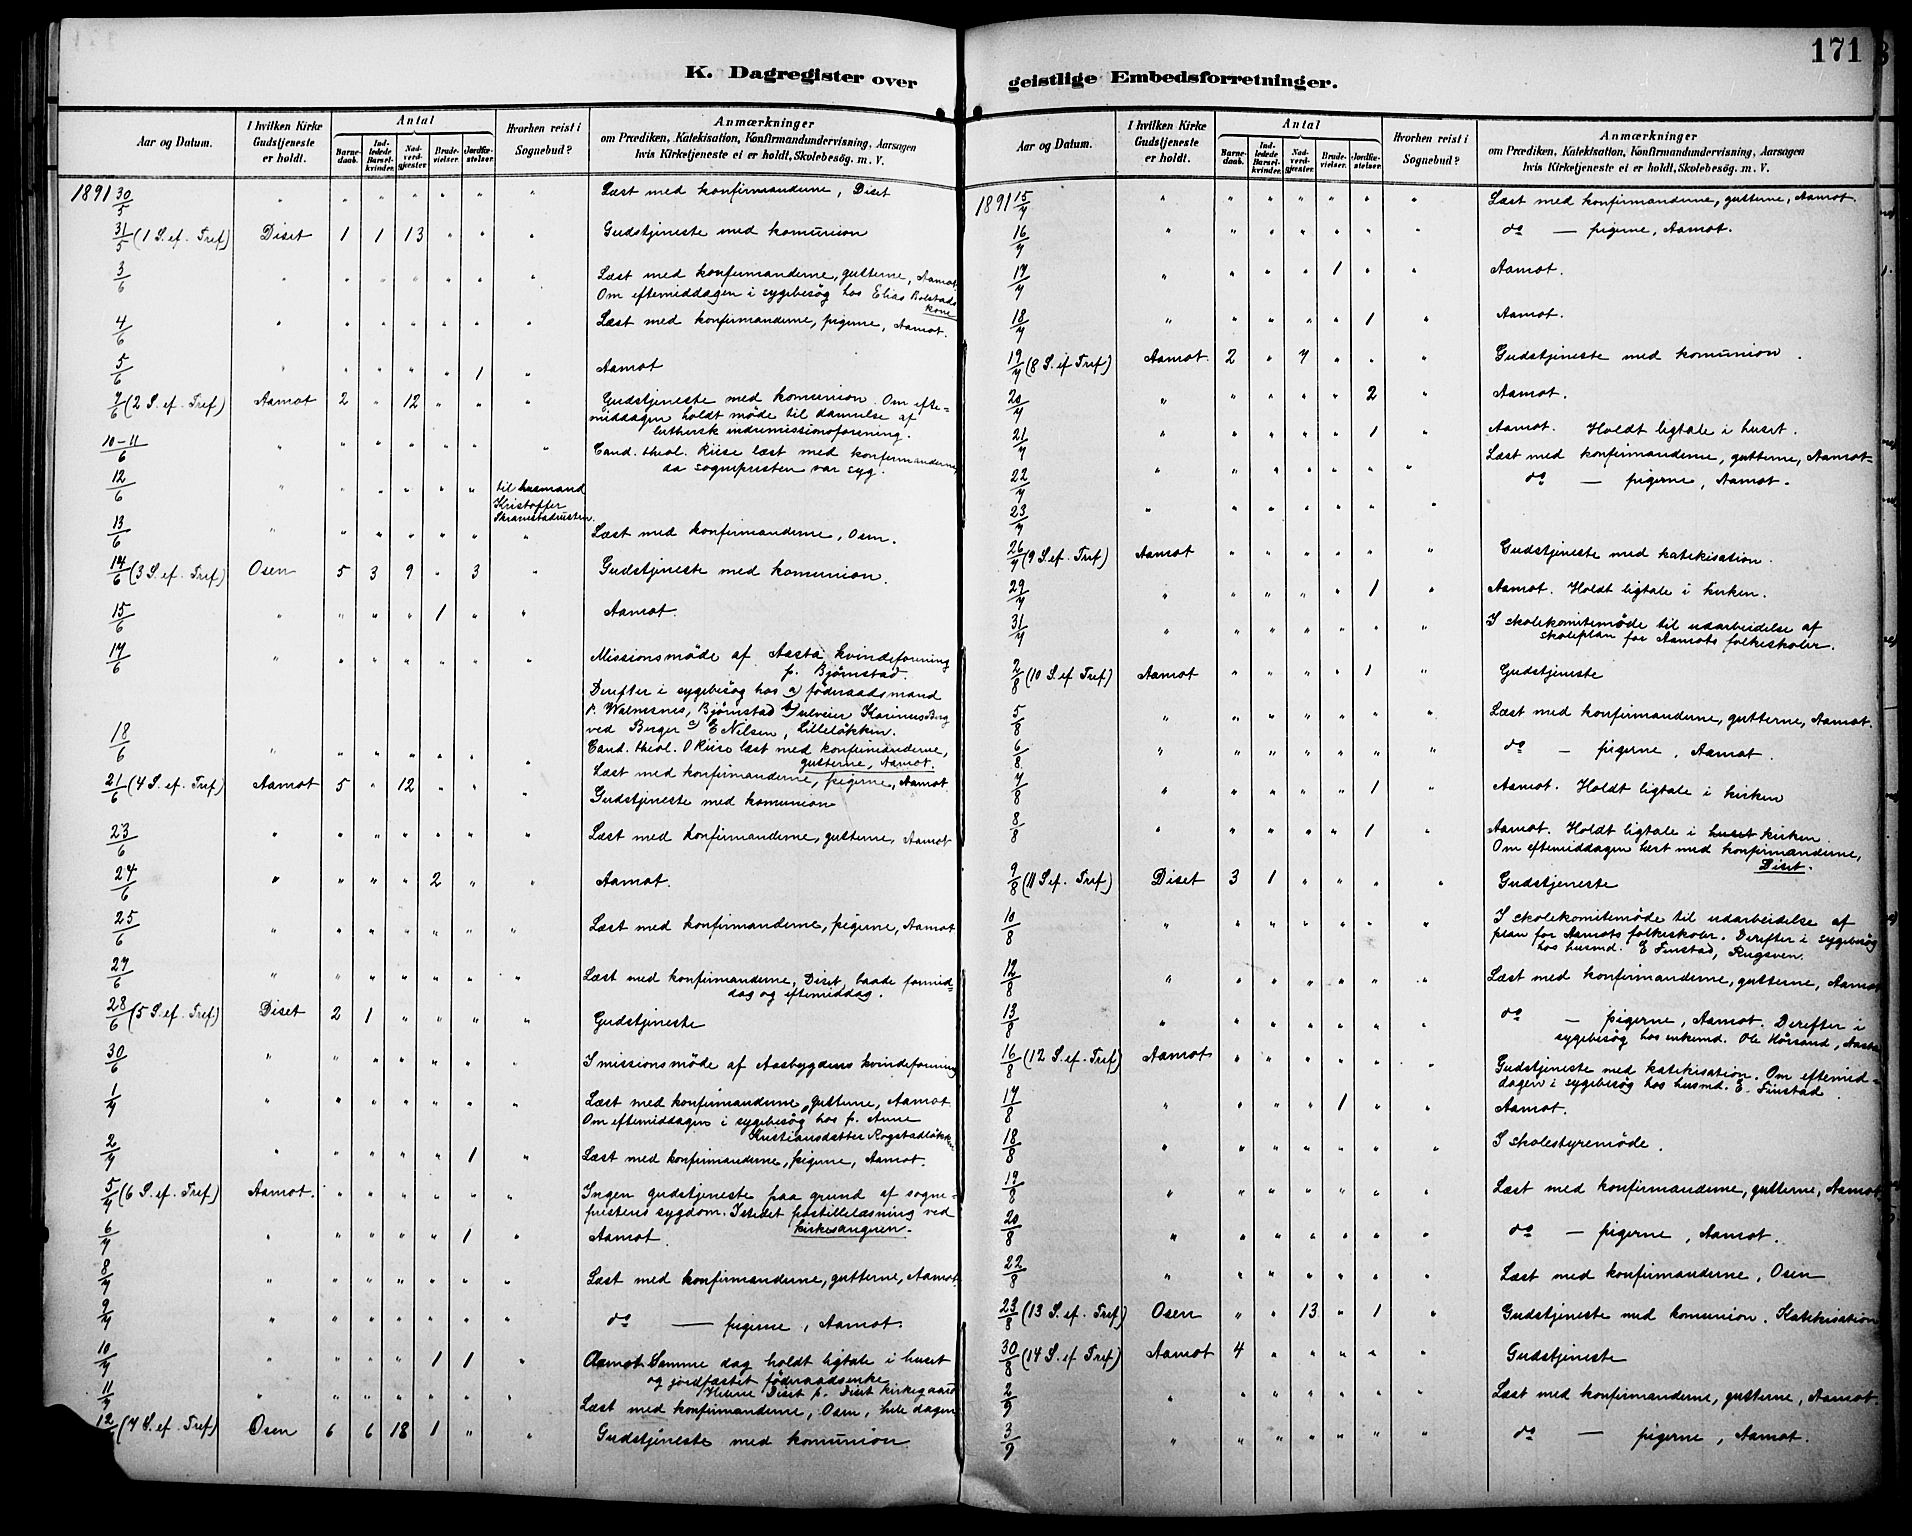 171
K. Dagregister over
geistlige Embedsforretninger.
Aar og Datum.
I hvilken Kirke Gudstjeneste er holdt.
Antal
Barnedaab.
Indledede Barselkvinder.
Nadverdgjester.
Brudevielser.
Jordfæstelser.
Hvorhen reist i Sognebud?
Anmærkninger
om Prædiken, Katekisation, Konfirmandundervisning, Aarsagen
hvis Kirketjeneste ei er holdt, Skolebesög. m. V.
1891 30/5 " " " " " " " Læst med konfirmanderne, Diset
31/5 (1 S. ef. Tref) Diset 1 1 13 " " " Gudstjeneste med komunion
3/6 " " " " " " " Læst med konfirmanderne, gutterne, Aamot.
Om eftemiddagen i sygebesög hos Elias Bolstads
kone
4/6 " " " " " " " Læst med konfirmanderne, pigerne, Aamot.
5/6 " " " " " 1 " Aamot
7/6 (2 S. ef. Tref) Aamot 2 " 12 " " " Gudstjeneste med komunion. Om efte=
middagen holdt möde til dannelse af
luthersk indremissionsforening.
10-11/6 " " " " " " " Cand. theol. Riise læst med konfirmanderne,
da sognepresten var syg.
12/6 " " " " " " til husmand
Kristoffer
Skramstadrusten.
13/6 " " " " " " " Læst med konfirmanderne, Osen.
14/6 (3 S. ef. Tref) Osen 5 3 9 " 3 " Gudstjeneste med komunion.
15/6 " " " " 1 " " Aamot.
17/6 " " " " " " " Missionsmöde af Aasta kvindeforening
p. Björnstad.
Derefter i sygebesög hos a) föderaadsmand
P. Walmsnes, Björnstad b) Karinus Berg
ved Berger c) E Nilsen, Lillelökken.
18/6 " " " " " " " Cand. theol. O Riise læst med konfirmanderne,
gutterne, Aamot.
Læst med konfirmanderne, pigerne, Aamot
21/6 (4 S. ef. Tref) Aamot 5 " 12 " " " Gudstjeneste med komunion
23/6 " " " " " " " Læst med konfirmanderne, gutterne, Aamot
24/6 " " " " 2 " " Aamot.
25/6 " " " " " " " Læst med konfirmanderne, pigerne, Aamot
27/6 " " " " " " " Læst med konfirmanderne, Diset, baade formid=
dag og eftemiddag.
28/6 (5 S. ef. Tref) Diset 2 1 " " " " Gudstjeneste
30/6 " " " " " " " I missionsmöde af Aasbygdens kvindeforening
1/7 " " " " " " " Læst med konfirmanderne, gutterne, Aamot.
Om eftemiddagen i sygebesög hos p. Anne
Kristiansdatter Rogstadlökken
2/7 " " " " " 1 " Læst med konfirmanderne, pigerne, Aamot.
5/7 (6 S. ef. Tref) Aamot. " " " " " " Ingen gudstjeneste paa grund af sogne=
prestens sygdom. Istedet postillelæsning ved
kirkesangeren.
6/7 " " " " " 1 " Aamot.
8/7 " " " " " " " Læst med konfirmanderne, gutterne, Aamot.
9/7 " " " " " " " do — pigerne, Aamot.
10/7 " " " " 1 1 " Aamot. Samme dag holdt ligtale i huset
og jordfæstet föderaadsenke
Helene Diset p. Diset kirkegaard
11/7 " " " " " " " Læst med konfirmanderne, Osen, hele dagen
12 (7 S. ef. Tref) Osen 6 6 18 1 " " Gudstjeneste med komunion.
Aar og Datum.
I hvilken Kirke Gudstjeneste er holdt.
Antal
Barnedaab.
Indledede Barselkvinder.
Nadverdgjester.
Brudevielser.
Jordfæstelser.
Hvorhen reist i Sognebud?
Anmærkninger
om Prædiken, Katekisation, Konfirmandundervisning, Aarsagen
hvis Kirketjeneste ei er holdt, Skolebesög. m. V.
1891 15/7 " " " " " " " Læst med konfirmanderne, gutterne, Aamot.
16/7 " " " " " " " do — pigerne, Aamot.
17/7 " " " " 1 " " Aamot.
18/7 " " " " " 1 " Aamot.
19/7 (8 S. ef Tref) Aamot. 2 " 7 " " " Gudstjeneste med komunion.
20/7 " " " " " 2 " Aamot.
21/7 " " " " " 1 " Aamot. Holdt ligtale i huset.
22/7 " " " " " " " Læst med konfirmanderne, gutterne, Aamot
23/7 " " " " " " " do — pigerne, Aamot.
26/7 (9 S. ef. Tref) Aamot " " " " " " Gudstjeneste med katekisation.
29/7 " " " " " 1 " Aamot. Holdt ligtale i kirken.
31/7 " " " " " " " I skolekomitemöde til udarbeidelse af
skoleplan for Aamots folkeskoler.
2/8 (10 S. ef Tref) Aamot " " " " 1 " Gudstjeneste
5/8 " " " " " " " Læst med konfirmanderne, gutterne, Aamot.
6/8 " " " " " " " do — pigerne, Aamot.
7/8 " " " " " 1 " Aamot. Holdt ligtale i kirken
8/8 " " " " " 1 " Aamot. Holdt ligtale i huset kirken.
Om eftemiddagen læst med konfirmanderne,
Diset.
9/8 (11 S. ef. Tref) Diset 3 1 " " " " Gudstjeneste
10/8 " " " " " " " I skolekomitemöde til udarbeidelse af
plan for Aamots folkeskoler. Derefter i sygebesög
hos husmd. E Finstad, Rugsven.
12/8 " " " " " " " Læst med konfirmanderne, gutterne, Aamot
13/8 " " " " " " " do — pigerne, Aamot. Derefter i
sygebesög hos enkemd. Ole Hörsand, Aasta
16/8 (12 S. ef. Tref) Aamot " " " " " " Gudstjeneste med katekisation. Om eftemid=
dagen i sygebesög hos husmd. E. Finstad
17/8 " " " " 1 " " Aamot.
18/8 " " " " " " " I skolestyremöde.
19/8 " " " " " " " Læst med konfirmanderne, gutterne, Aamot
20/8 " " " " " " " do — pigerne, Aamot.
22/8 " " " " " " " Læst med konfirmanderne, Osen
23/8 (13 S. ef. Tref) Osen " " 13 " 1 " Gudstjeneste med komunion. Katekisation
30/8 (14 S. ef Tref) Aamot 4 " " " " " Gudstjeneste
2/9 " " " " " " " Læst med konfirmanderne, gutterne, Aamot.
3/9 " " " " " " " do — pigerne, Aamot.